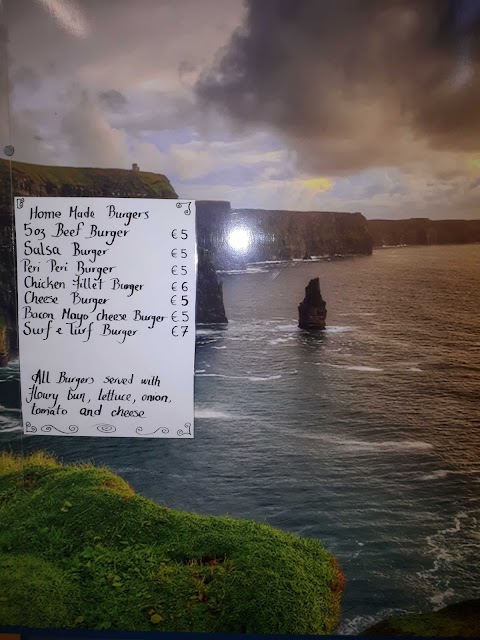 Home Made Burgers
5oz Beef Burger €5
Salsa Burger €5
Peri Peri Burger €5
Chicken Fillet Burger €6
Cheese Burger €5
Bacon Mayo cheese Burger €5
Surf & Turf Burger €7
All Burgers served with
floury bun, lettuce, onion,
tomato and cheese